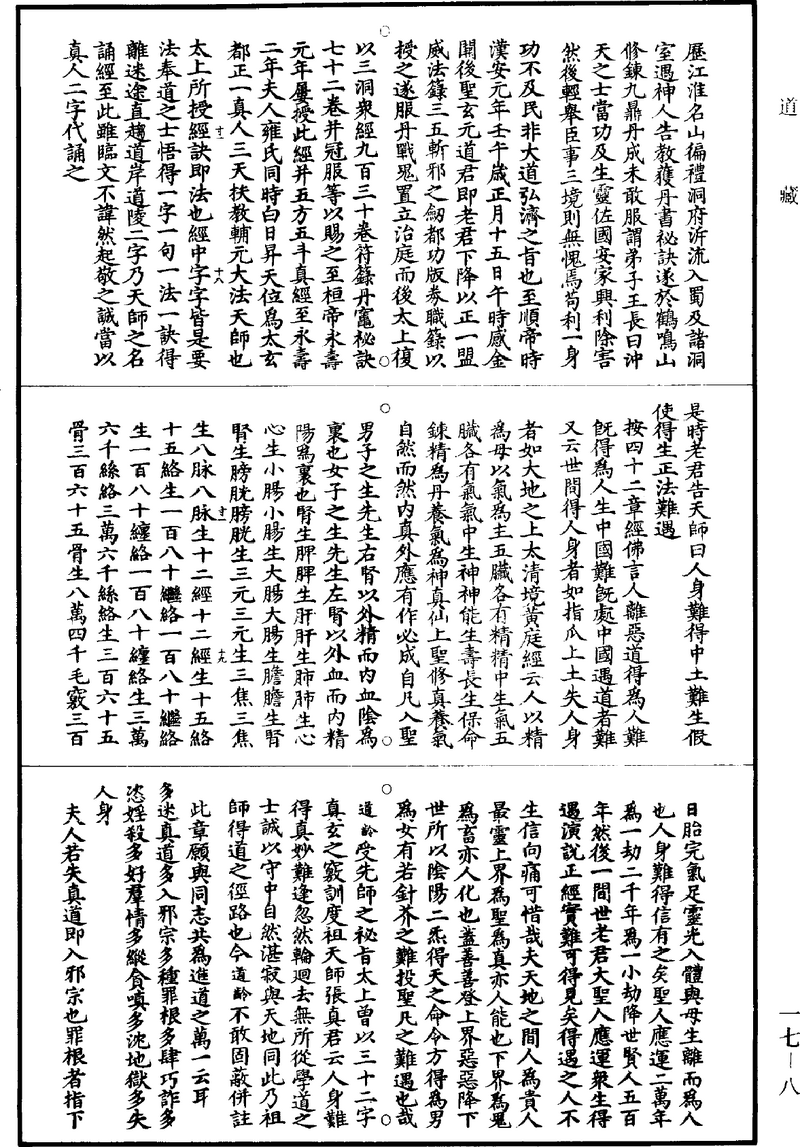 道藏
歷江淮名山徧禮洞府泝流入蜀及諸洞
室遇神人告教獲丹書祕訣遂於鶴鳴山
修鍊九鼎丹成未敢服謂弟子王長曰沖
天之士當功及生靈佐國安家興利除害
然後輕舉臣事三境則無愧焉苟利一身
功不及民非大道弘濟之旨也至順帝時
漢安元年壬午歲正月十五日午時感金
闕後聖玄元道君即老君下降以正一盟
威法籙三五斬邪之劒都功版券職籙以
授之遂服丹戰鬼置立治庭而後太上復
以三洞衆經九百三十卷符籙丹竈秘訣
七十二卷并冠服等以賜之至桓帝永壽
元年屢授此經并五方五斗真經至永壽
二年夫人雍氏同時白日昇天位為太玄
都正一真人三天扶教輔元大法天師也
太上所授經訣即法也經中字字皆是要
法奉道之士悟得一字一句一法一訣得
離迷途直趨道岸道陵二字乃天師之名
誦經至此雖臨文不諱然起敬之誠當以
真人二字代誦之
是時老君告天師曰人身難得中土難生假
使得生正法難遇
按四十二章經佛言人離惡道得為人難
既得為人生中國難既處中國遇道者難
又云世間得人身者如指爪上土失人身
者如大地之上太清境黃庭經云人以精
為母以氣為主五臟各有精精中生氣五
臟各有氣氣中生神神能生壽長生保命
鍊精為丹養氣為神真仙上聖修真養氣
自然而然内真外應有作必成自凡入聖
男子之生先生右腎以外精而内血陰為
裏也女子之生先生左腎以外血而内精
陽為裏也腎生脾脾生肝肝生肺肺生心
心生小腸小腸生大腸大腸生膽膽生腎
腎生膀胱膀胱生三元三元生三焦三焦
生八脉八脉生十二經十二經生十五絡
十五絡生一百八十繼絡一百八十繼絡
生一百八十纏絡一百八十纏絡生三萬
六千絲絡三萬六千絲絡生三百六十五
骨三百六十五骨生八萬四千毛竅三百
日胎完氣足靈光入體與母生離而為人
也人身難得信有之矣聖人應運二萬年
為一劫二千年為一小劫降世賢人五百
年然後一間世老君大聖人應運衆生得
遇演說正經實難可得見矣得遇之人不
生信向痛可惜哉夫天地之間人為貴人
最靈上界為聖為真亦人能也下界為鬼
為畜亦人化也蓋善善登上界惡惡降下
世所以陰陽二炁得天之命令方得為男
為女有若針芥之難投聖凡之難遇也哉
道齡受先師之秘旨太上曾以三十二字
真玄之竅訓度祖天師張真君云人身難
得真妙難逢忽然輪迴去無所從學道之
士誠以守中自然湛寂與天地同此乃祖
師得道之徑路也今道齡不敢固蔽併註
此章願與同志共為進道之萬一云耳
多迷真道多入邪宗多種罪根多肆巧詐多
恣婬殺多好羣情多縱貪嗔多沈地獄多失
人身
夫人若失真道即入邪宗也罪根者指下
一七－八